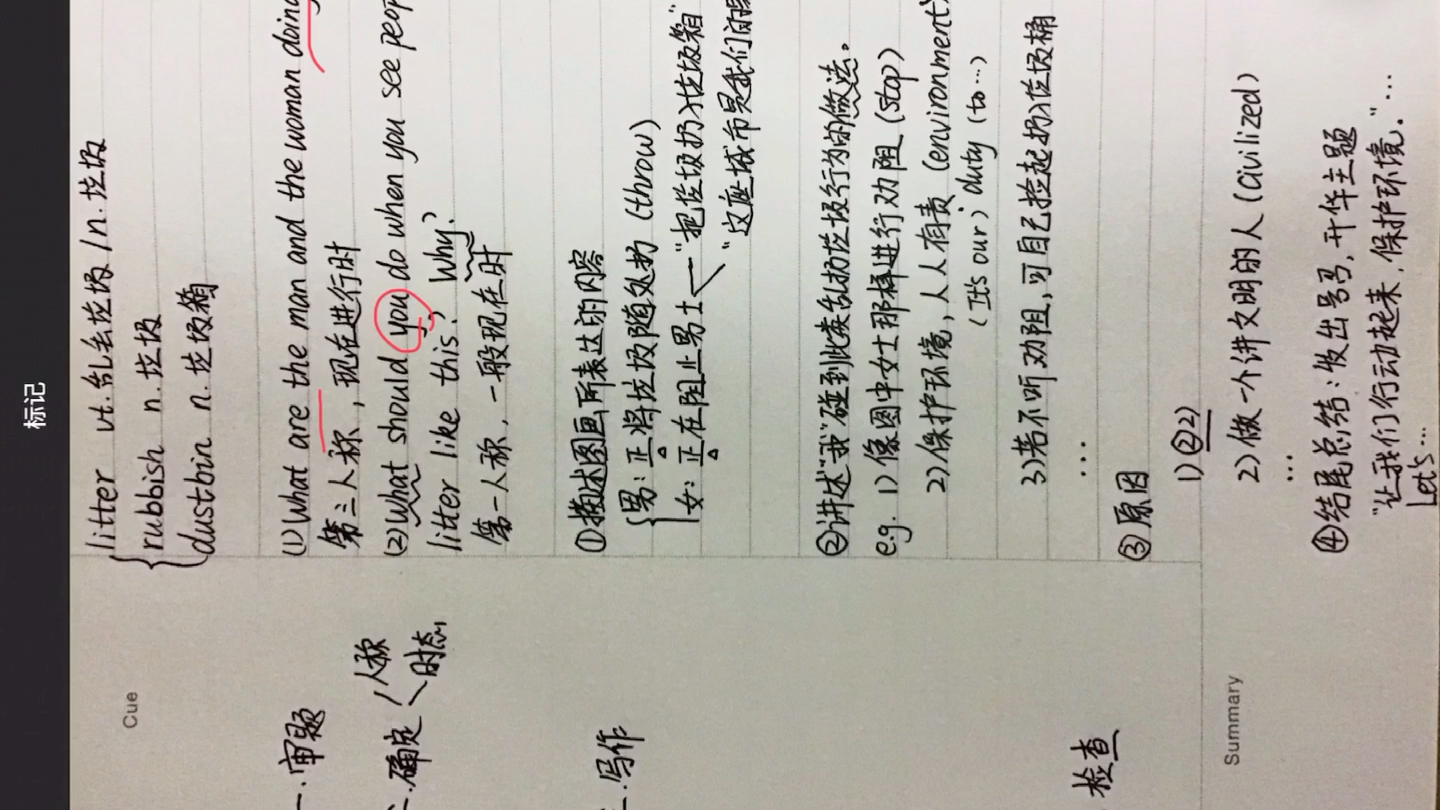 标记
Cue
litter vt.乱丢垃圾/n.垃圾
rubbish n.垃圾
dustbin n.垃圾箱
一.审题
(1)What are the man and the woman doing
第三人称，现在进行时
确定
人称
时态
(2)What should you do when you see peop
litter like this? Why?
第一人称，一般现在时
写作
①描述图画所表达的内容
男：正将垃圾随处扔 (throw)
女：正在阻止男士
"把垃圾扔入垃圾箱"
"这座城市是我们的
②讲述"我"碰到此类乱扔垃圾行为的做法。
e.g. 1)像图中女士那样进行劝阻 (stop)
2)保护环境，人人有责 (environment)
(It's our duty (to…)
3)若不听劝阻，可自己捡起扔入垃圾桶
…
检查
③原因
1)②2)
Summary
2)做一个讲文明的人 (civilized)
…
④结尾总结：发出号召，升华主题
"让我们行动起来，保护环境。"…
Let's…